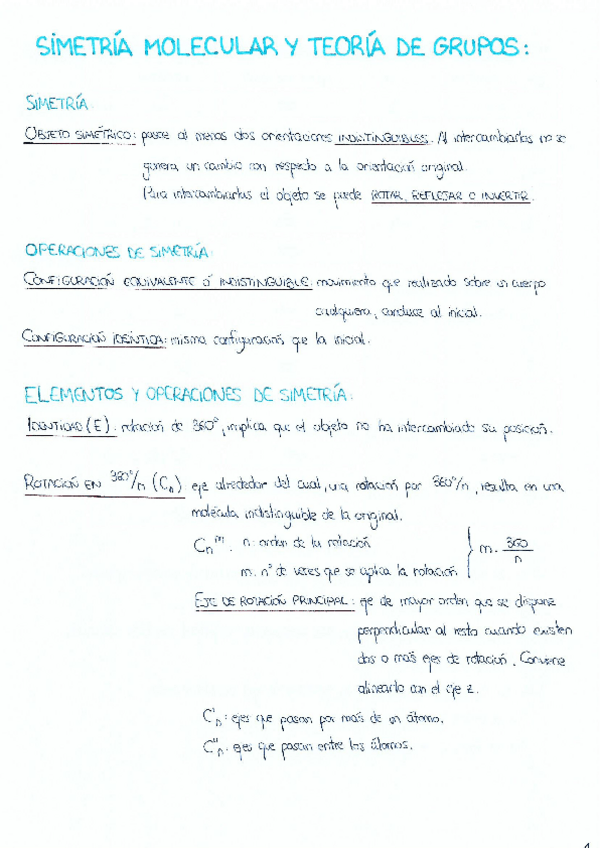 SIMETRÍA MOLECULAR Y TEORÍA DE GRUPOS:
SIMETRÍA
OBJETO SIMÉTRICO: posee al menos dos orientaciones INDISTINGUIBLES. Al intercambiarlas no se
genera un cambio con respecto a la orientación original.
Para intercambiarlas el objeto se puede ROTAR, REFLEJAR O INVERTIR.
OPERACIONES DE SIMETRÍA:
CONFIGURACIÓN EQUIVALENTE Ó INDISTINGUIBLE: movimiento que realizado sobre un cuerpo
cualquiera, conduce al inicial.
CONFIGURACIÓN IDÉNTICA: misma configuración que la inicial.
ELEMENTOS Y OPERACIONES DE SIMETRÍA:
IDENTIDAD (E): rotación de 360°, implica que el objeto no ha intercambiado su posición.
ROTACIÓN EN 360°/n (Cn) eje alrededor del cual, una rotación por 360°/n, resulta en una
molécula indistinguible de la original.
Cn^m. n: orden de la rotación
m: nº de veces que se aplica la rotación } m· 360/n
EJE DE ROTACIÓN PRINCIPAL: eje de mayor orden que se dispone
perpendicular al resto cuando existen
dos o más ejes de rotación. Conviene
alinearlo con el eje z.
C'n: ejes que pasan por más de un átomo.
C''n: ejes que pasan entre los átomos.
1